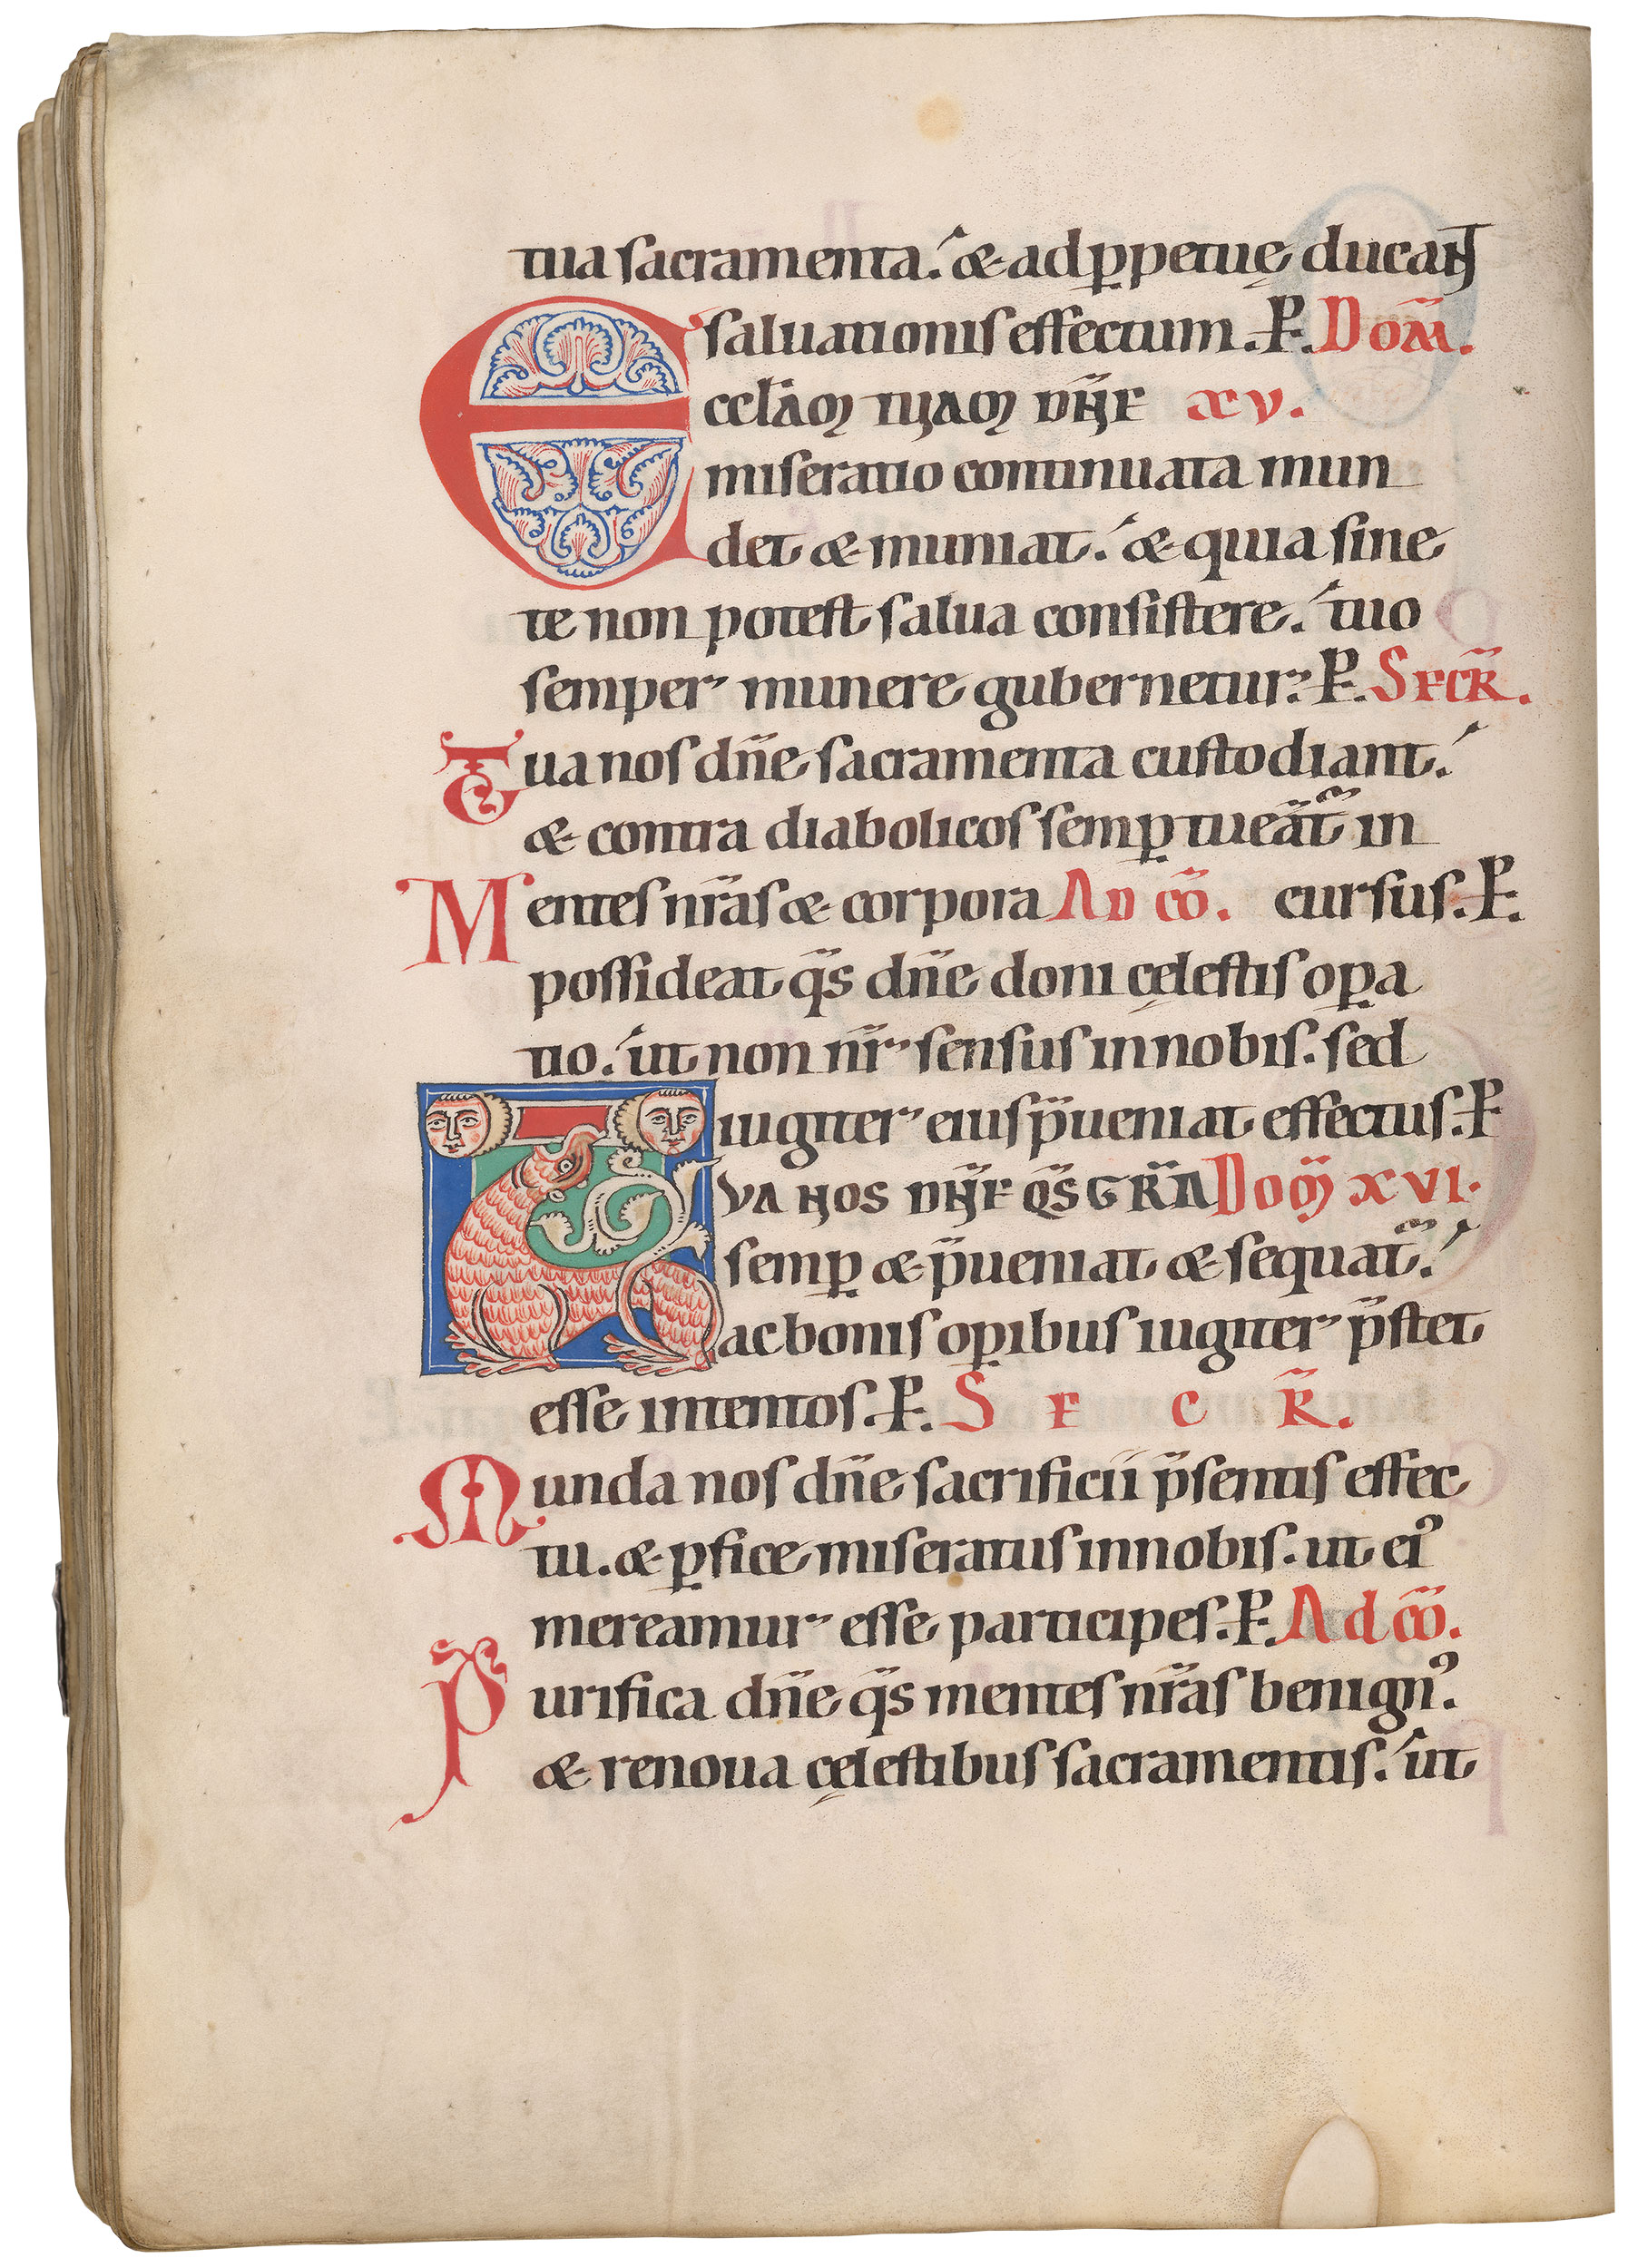 tua sacramenta. & ad p̱petuę ducaNT
saluationis effectum. P. DOM̄.
Eccl̄aM TUAM DN̄E XV.
miseratio continuata mun
det & muniat. & quia sine
te non potest salua consistere. tuo
semper munere gubernetur. P. SECR̄.
Tua nos dn̄e sacramenta custodiant.
& contra diabolicos semp̱ tueãt᷑ in
Mentes nr̄as & corpora AD CŌ. cursus. P.
possideat q̄s dn̄e doni cęlestis op̱a
tio. ut non nr̄ sensus in nobis. sed
iugiter eius p̄ueniat effectus. P
TUA NOS DN̄E QS̄ GR̄A DOM̄ XVI.
semp̱ & p̄ueniat & sequat᷑.
ac bonis op̱ibus iugiter p̄stet
esse intentos. P. S E C R̄.
Munda nos dn̄e sacrificii p̄sentis effec
tu. & p̱fice miseratus in nobis. ut ei⁹
mereamur esse participes. P. Ad cō.
Purifica dn̄e q̄s mentes nr̄as benign⁹.
& renoua cęlestibus sacramentis. ut